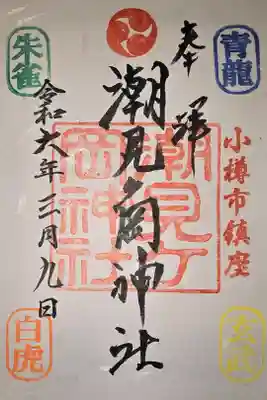 奉拝
青龍
小樽市鎮座
玄武
潮見ヶ岡神社
潮見ヶ岡神社
朱雀
令和六年三月九日
白虎